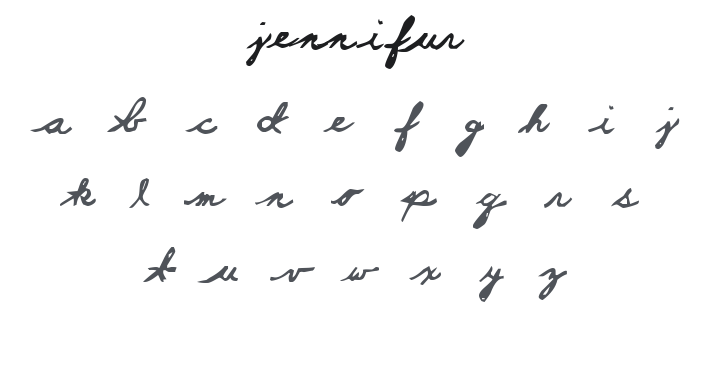 jennifur
a b c d e f g h i j
k l m n o p q r s
t u v w x y z